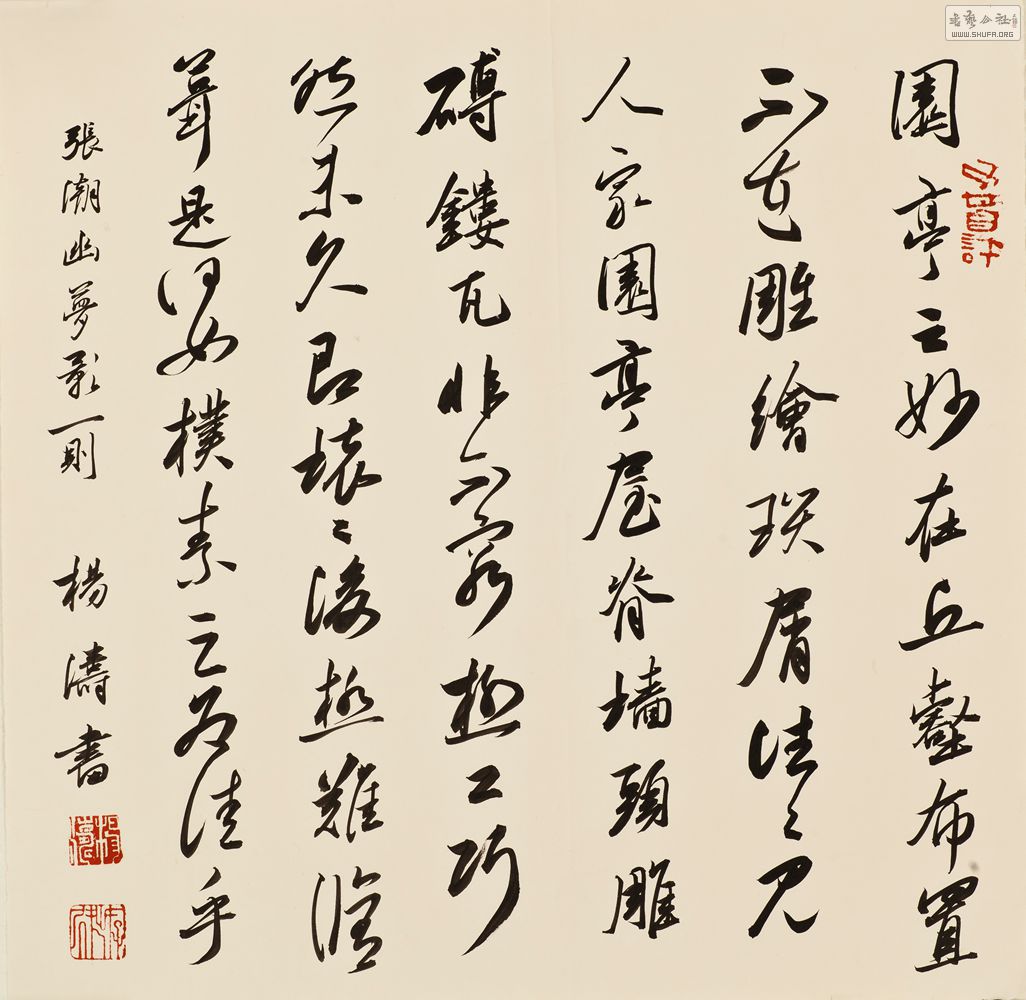 園亭之妙在丘壑布置
不在雕繪瑣屑往々見
人家園亭屋脊墙頭雕
磚鏤瓦非不窮極工巧
然未久即壞々後極難修
葺是何如樸素之為佳乎
張潮幽夢影一則 楊濤書
WWW.SHUFA.ORG